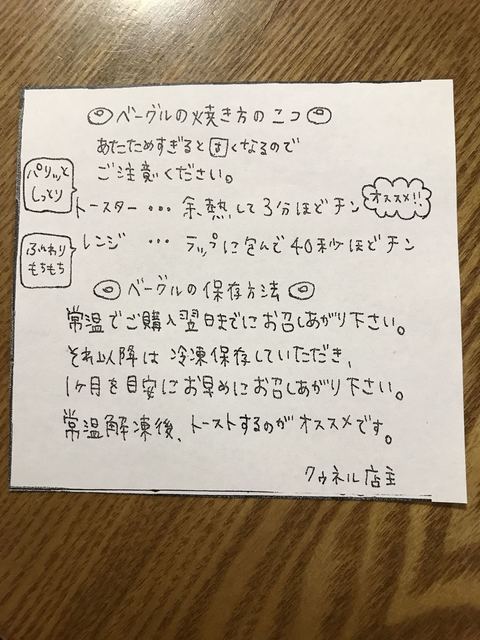 ◎ベーグルの焼き方のコツ◎
あたためすぎると固くなるので
ご注意ください。
パリッと
しっとり
トースター…余熱して3分ほどチン
オススメ!!
ふんわり
もちもち
レンジ …ラップに包んで40秒ほどチン
◎ベーグルの保存方法◎
常温でご購入翌日までにお召しあがり下さい。
それ以降は冷凍保存していただき、
1ヶ月を目安にお早めにお召しあがり下さい。
常温解凍後、トーストするのがオススメです。
クゥネル店主